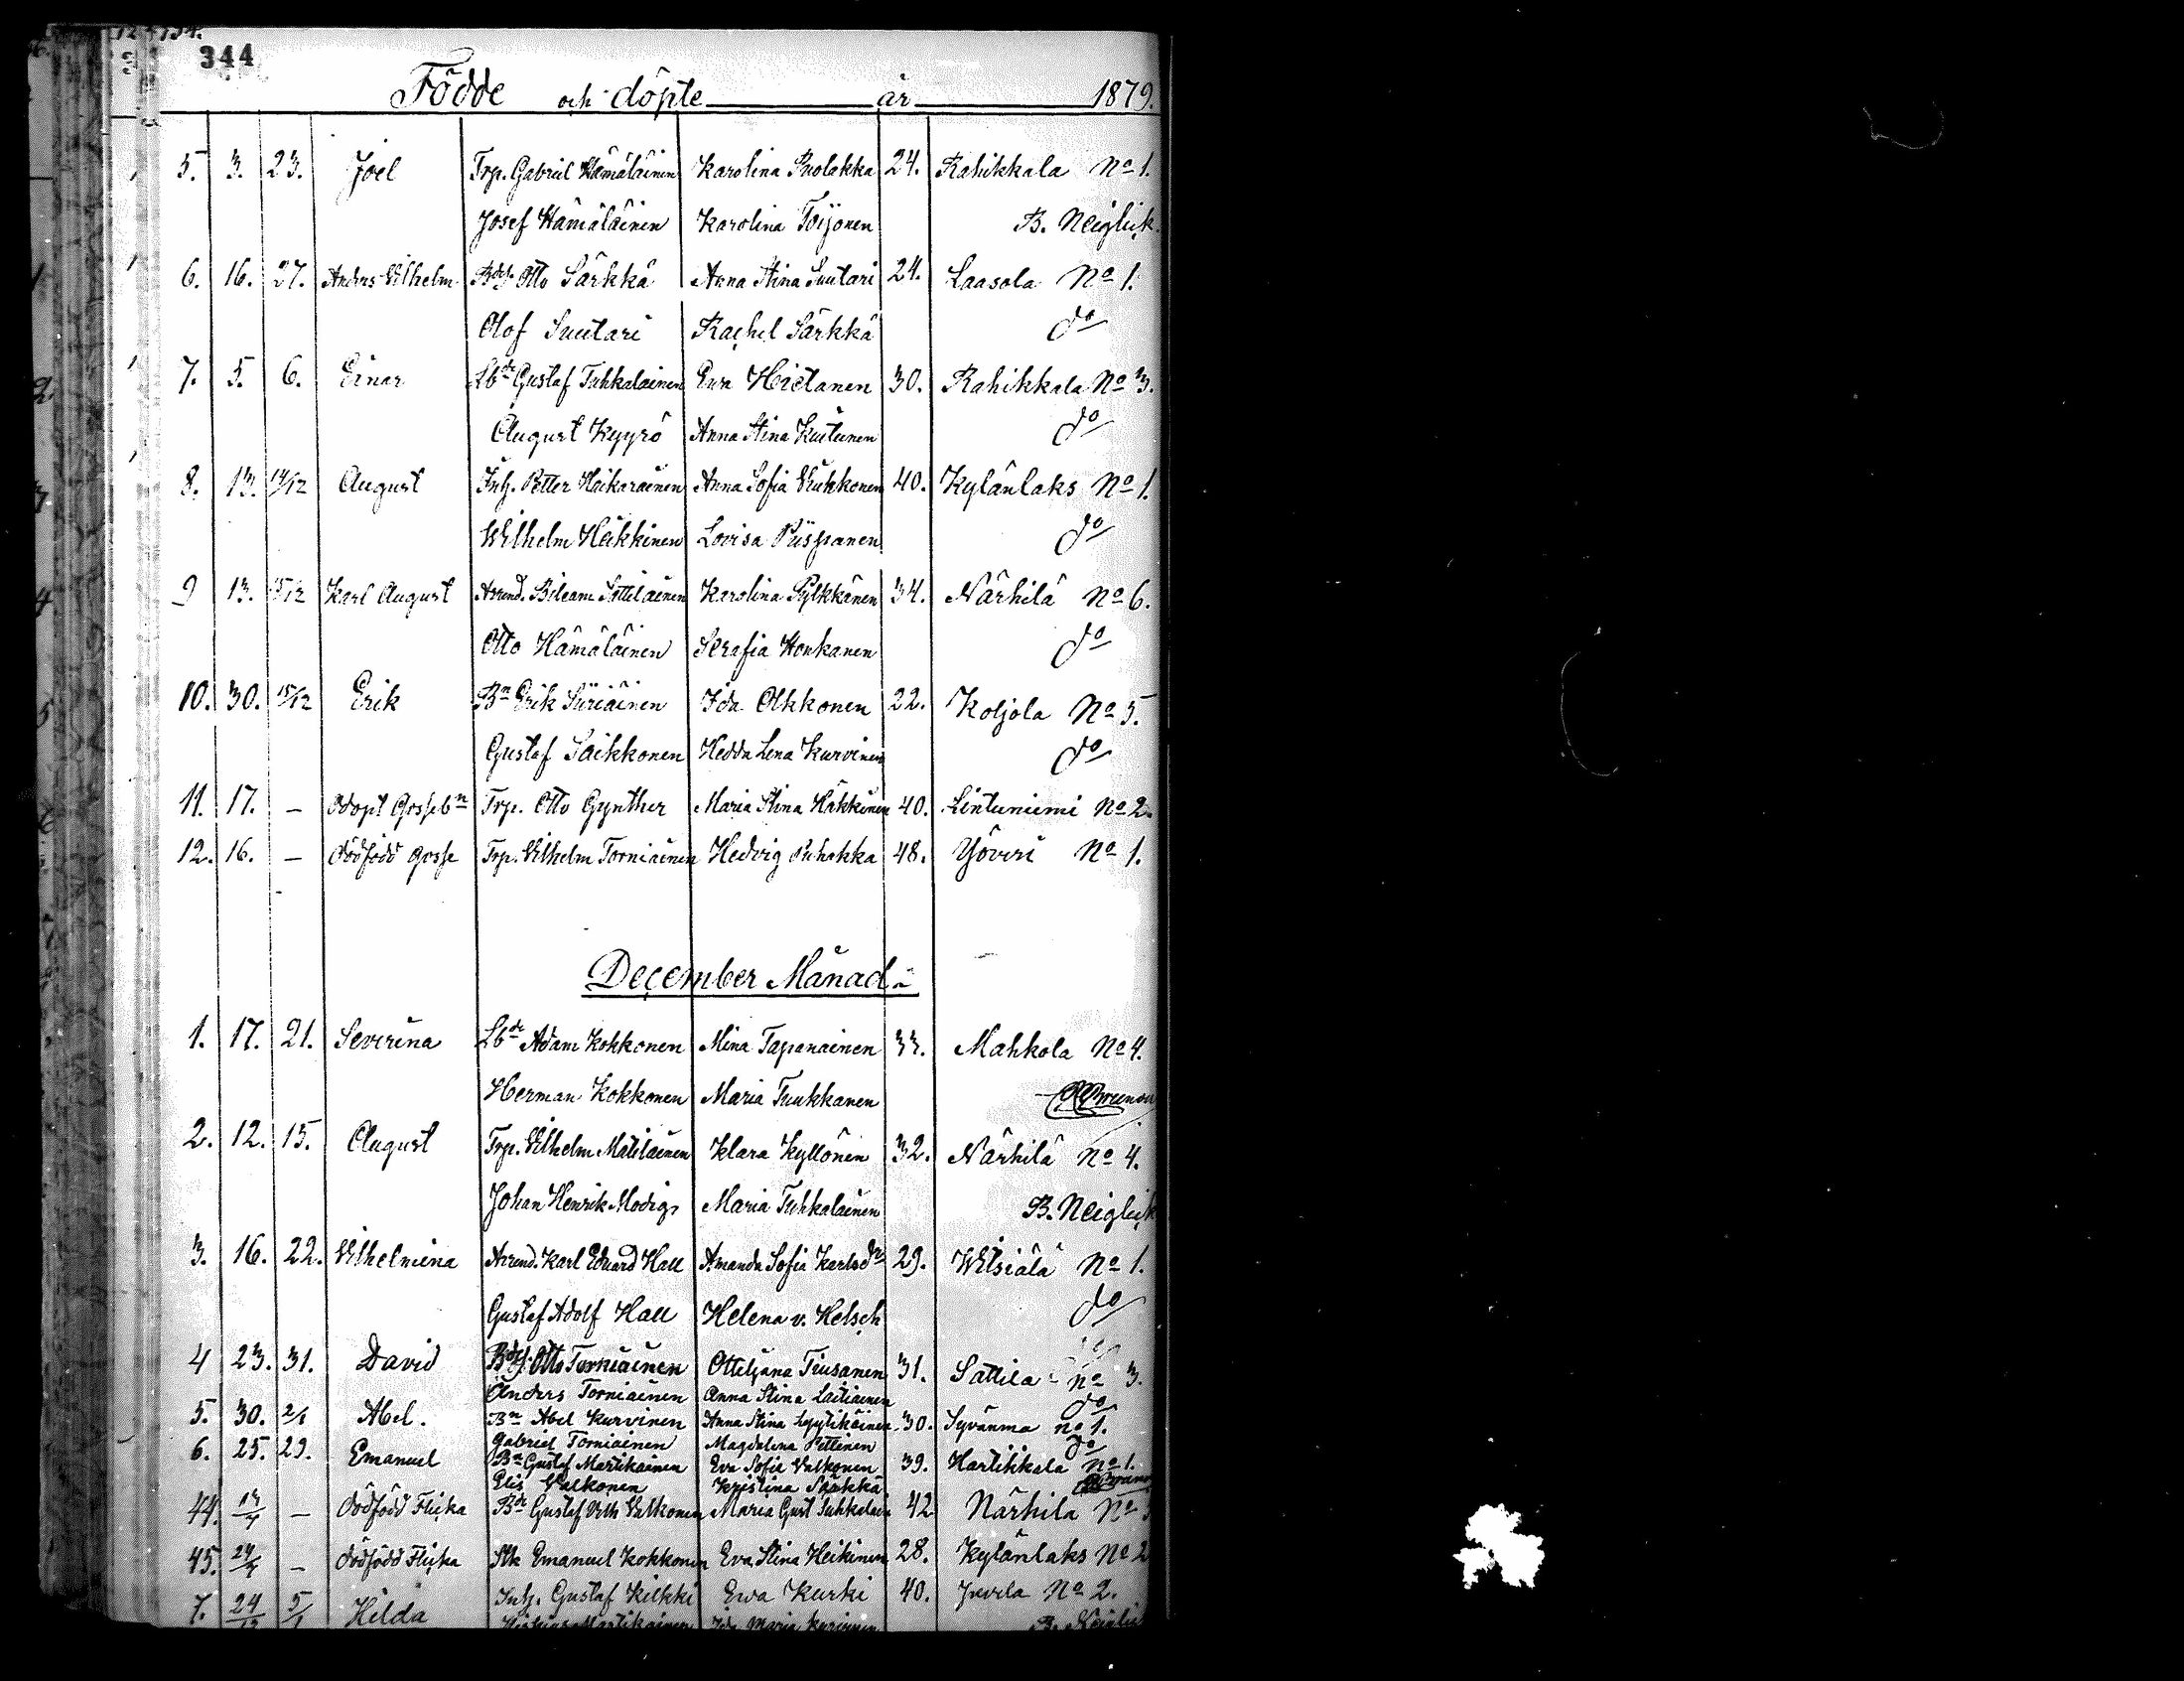 344
Födde och döpte år 1879.
5. 3. 23. Joel Trp. Gabriel Hämäläinen Karolina Puolakka 24. Rahikkala No 1.
Josef Hämäläinen Karolina Toijonen B. Neiglick
6. 16. 27. Anders Vilhelm Otto Särkkä Anna Stina Suutari 24. Laasola No 1.
Olof Suutari Rachel Särkkä do
7. 5. 6. Einar Lbde Gustaf Tuhkalainen Eva Hietanen 30. Rahikkala No 3.
August Kyyrö Anna Stina Kuitunen do
8. 13. 14/12 August Inh. Petter Haikarainen Anna Sofia 40. Kylänlaks No 1.
Wilhelm Heikkinen Lovisa Piispanen do
9 13. 15/12 Karl August Arrend. Karolina Pylkkänen 34. Närhilä No 6.
Otto Hämäläinen Serafia Honkanen do
10. 30. 15/12 Erik Bn Erik Siiriäinen Ida Olkkonen 22. Koljola No 5.
Gustaf Saikkonen Hedda Lena Kurvinen do
11. 17. — Odöpt Gossebn Trp. Otto Gynther Maria Stina Häkkinen 40. Lintuniemi No 2.
12. 16. — dödfödd gosse Trp. Vilhelm Torniainen Hedvig Puhakka 48. Yövvi No 1.
December Månad.
1. 17. 21. Severina Lbde Adam Kokkonen Mina Tapanainen 33. Mahkola No 4.
Herman Kokkonen Maria Tuukkanen
2. 12. 15. August Trp. Vilhelm Matilainen Klara Kyllönen 32. Närhilä No 4.
Johan Henrik Modig Maria Tuhkalainen B. Neiglick
3. 16. 22. Vilhelmina Arrend. Karl Eduard Hall Amanda Sofia Karlsdr 29. Witsiälä No 1.
Gustaf Adolf Hall Helena v. Helsch do
4 23. 31. David Otto Torniainen Otteljana Tiusanen 31. Sattila No 3.
Anders Torniainen Anna Stina Laitiainen do
5. 30. 2/1 Abel. Bn Abel Kurvinen Anna Stina Lyytikäinen 30. Syvänma No 1.
Gabriel Torniainen Magdalena Pettinen do
6. 25. 29. Emanuel Bn Gustaf Martikainen Eva Sofie Valkonen 39. Hartikkala No 1.
Elis Valkonen Kristina Särkkä
44. — dödfödd Flicka Gustaf Vilh Valkonen Maria Gust 42 Närhilä No
45. — dödfödd Flicka Emanuel Kokkonen Eva Stina Heikinen 28. Kylänlaks No 2
7. 24/12 5/1 Hilda Inh. Gustaf Kilkki Ewa Kurki 40. Juvela No 2.
Martikainen Maria